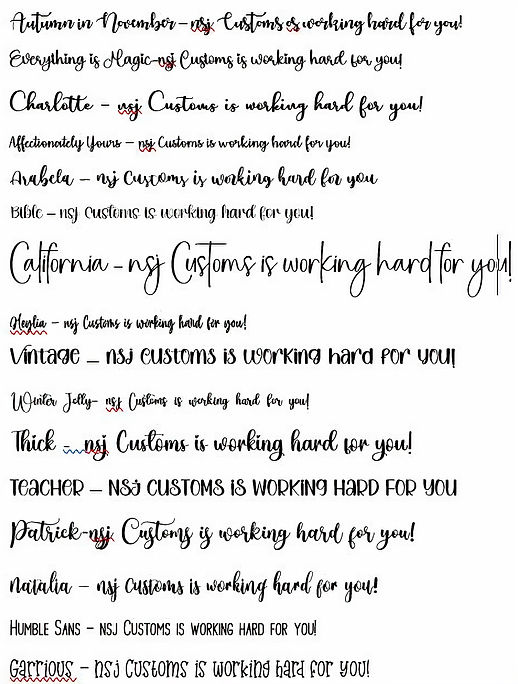 Autumn in November - nsj Customs os working hard for you!
Everything is Magic-nsj Customs is working hard for you!
Charlotte - nsj Customs is working hard for you!
Affectionately Yours - nsj Customs is working hard for you!
Arabela - nsj Customs is working hard for you
Bible - nsj Customs is working hard for you!
California - nsj Customs is working hard for you!
Heylia - nsj Customs is working hard for you!
Vintage - nsj customs is working hard for you!
Winter Jelly- nsj Customs is working hard for you!
Thick - nsj Customs is working hard for you!
Teacher - NSj customs is working hard for you
Patrick-nsj Customs is working hard for you!
Natalia - nsj Customs is working hard for you!
Humble Sans - nsj Customs is working hard for you!
Garrious - nsj Customs is working hard for you!